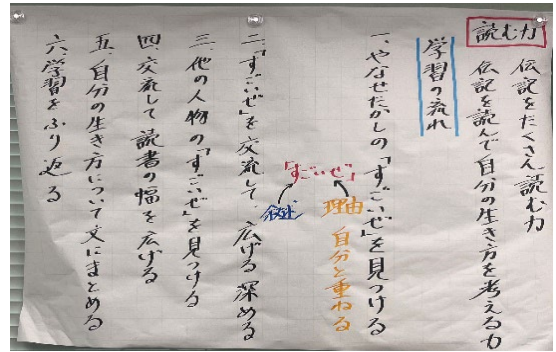 読む力
伝記をたくさん読む力
伝記を読んで自分の生き方を考える力
学習の流れ
一、やなせたかしの「すごいぜ」を見つける
「すごいぜ」
理由 自分と重ねる
叙述
二、「すごいぜ」を交流して、広げる深める
三、他の人物の「すごいぜ」を見つける
四、交流して読書の幅を広げる
五、自分の生き方について文にまとめる
六、学習をふり返る